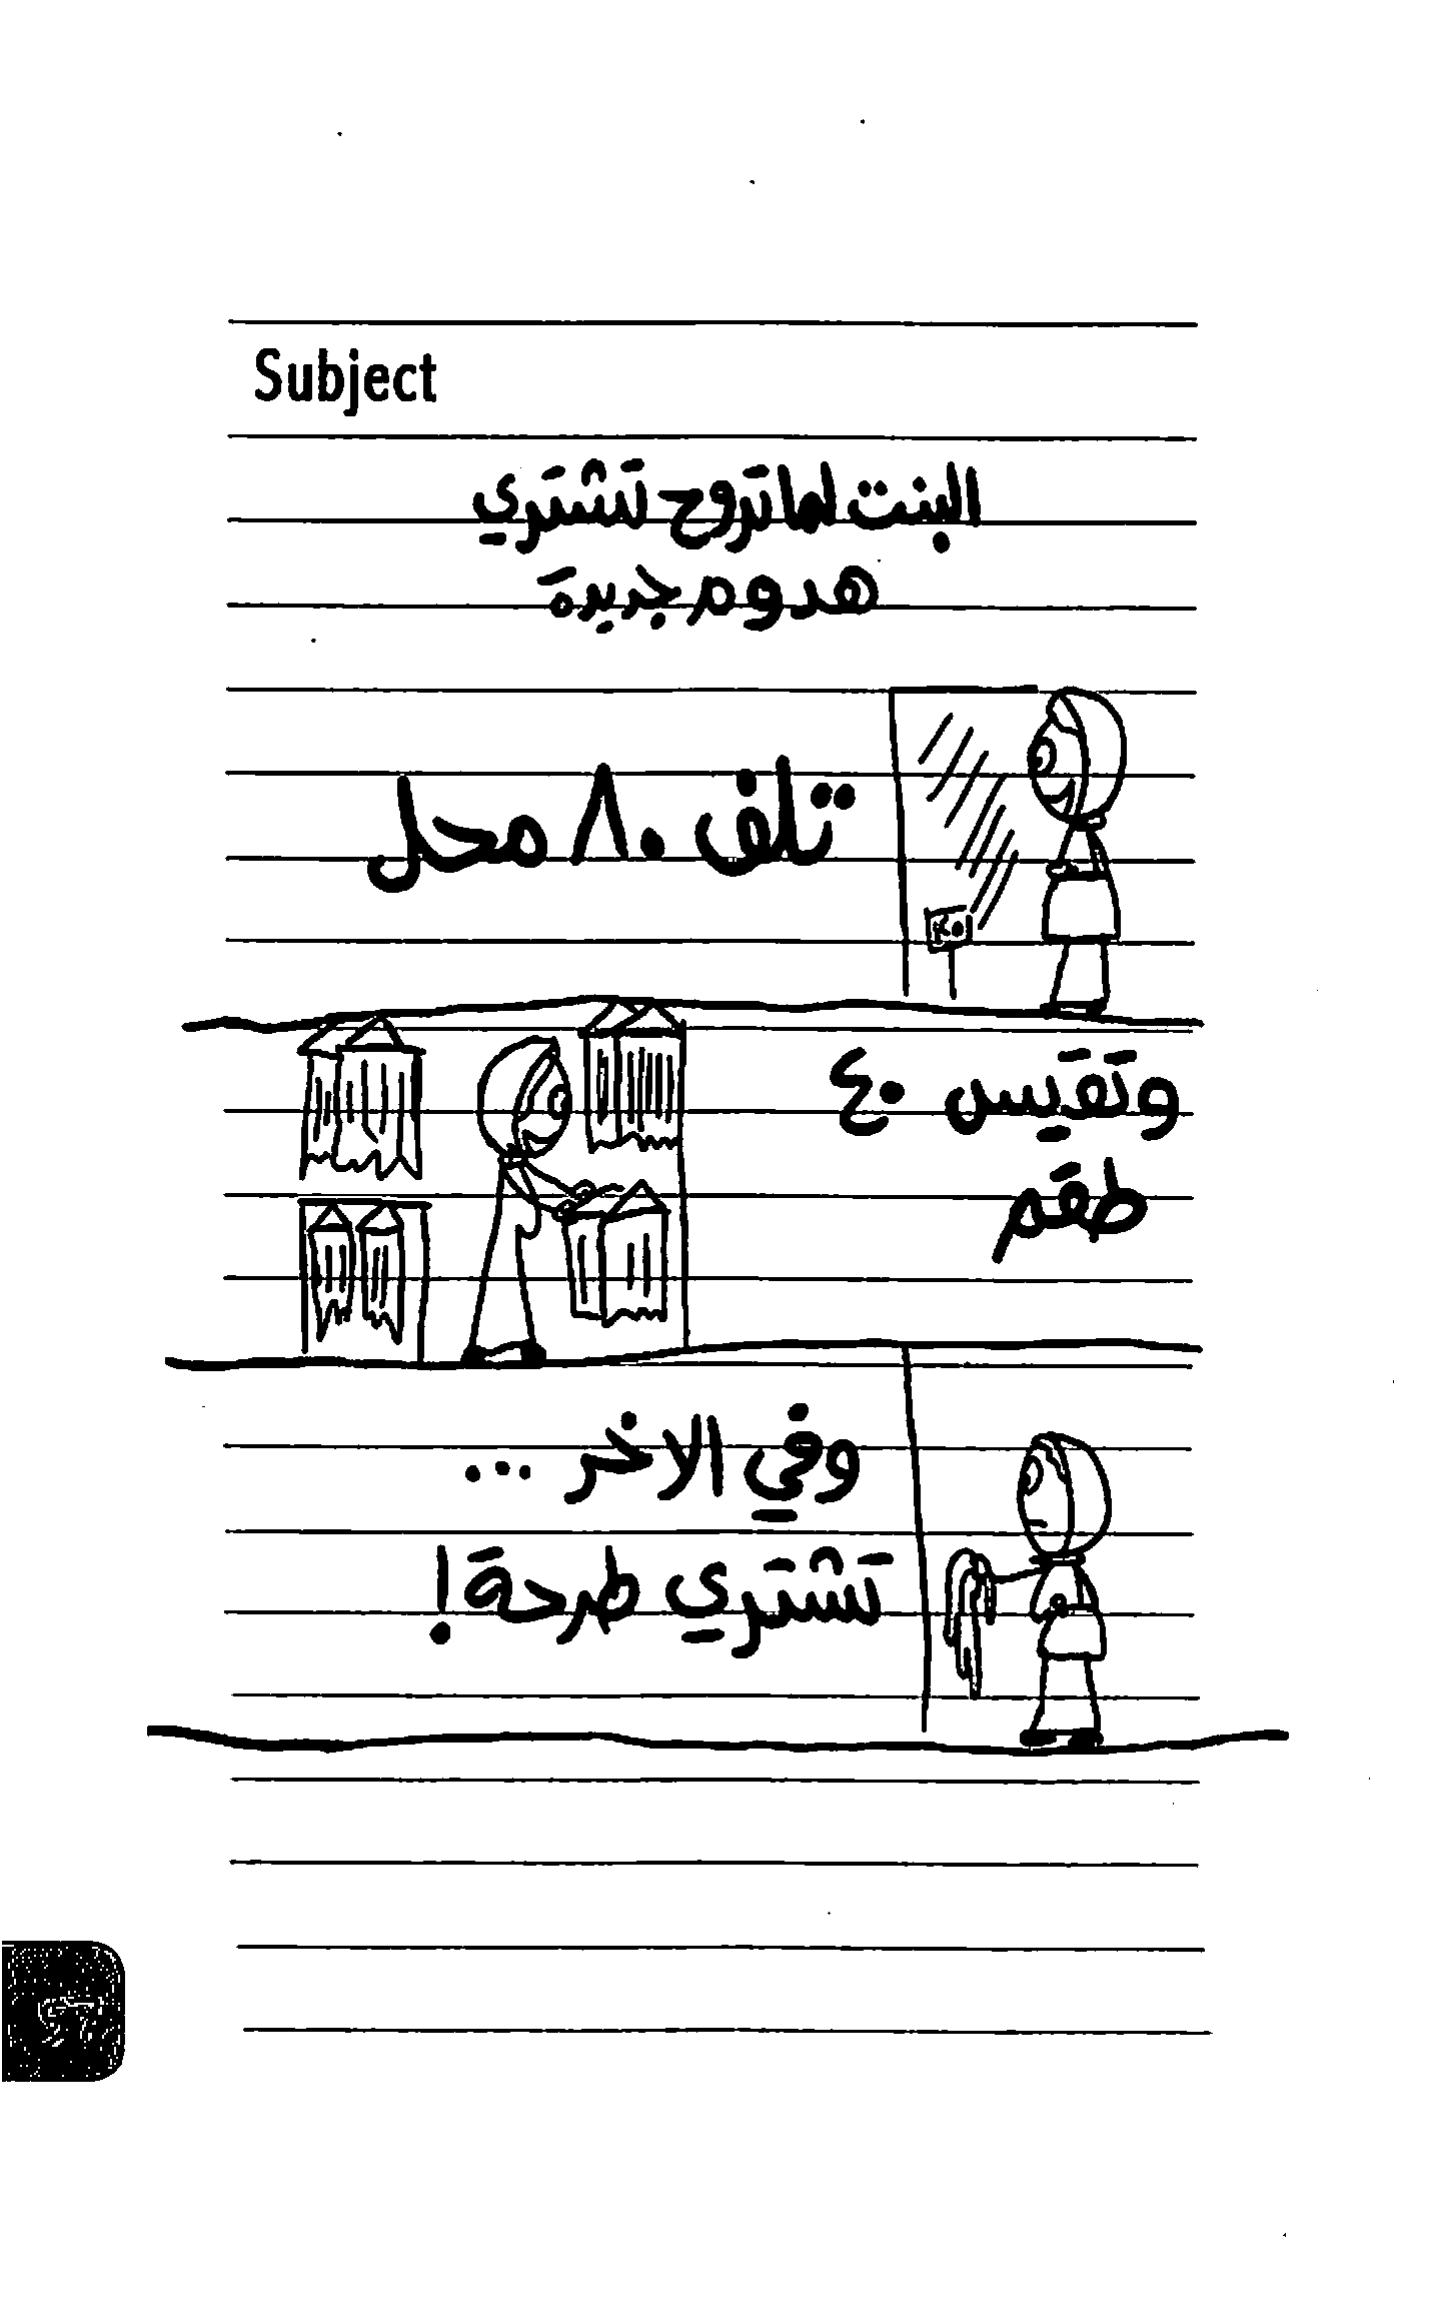 Subject
البنت لما تروح تشتري
هدوم جديدة
تلف ٨٠ محل
وتقيس ٤٠
طقم
وفي الاخر ...
تشتري طرحة!